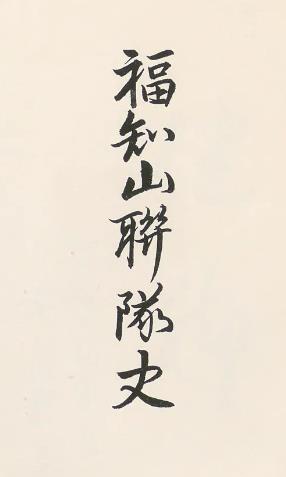 福知山聯隊史